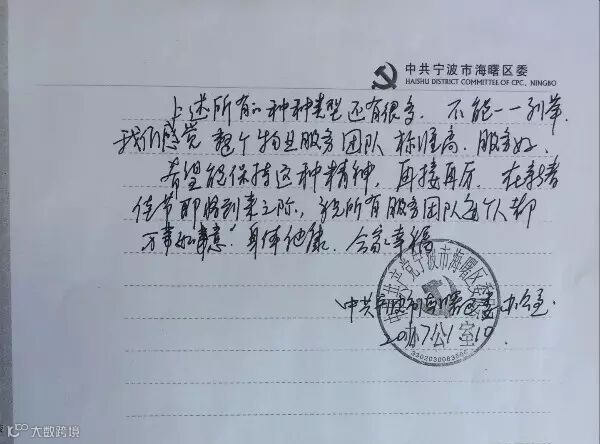 中共宁波市海曙区委
HAISHU DISTRICT COMMITTEE OF CPC, NINGBO
上述所有的种种类型还有很多，不能一一列举．
我们感觉 整个物业服务团队 标准高．服务好．
希望能保持这种精神，再接再厉．在新春
佳节即将到来之际，祝所有服务团队每个人都
万事如意！身体健康．合家幸福
中共宁波市海曙区委办公室．
2017.1.10.
中国共产党宁波市海曙区委员会
办公室
大数跨境